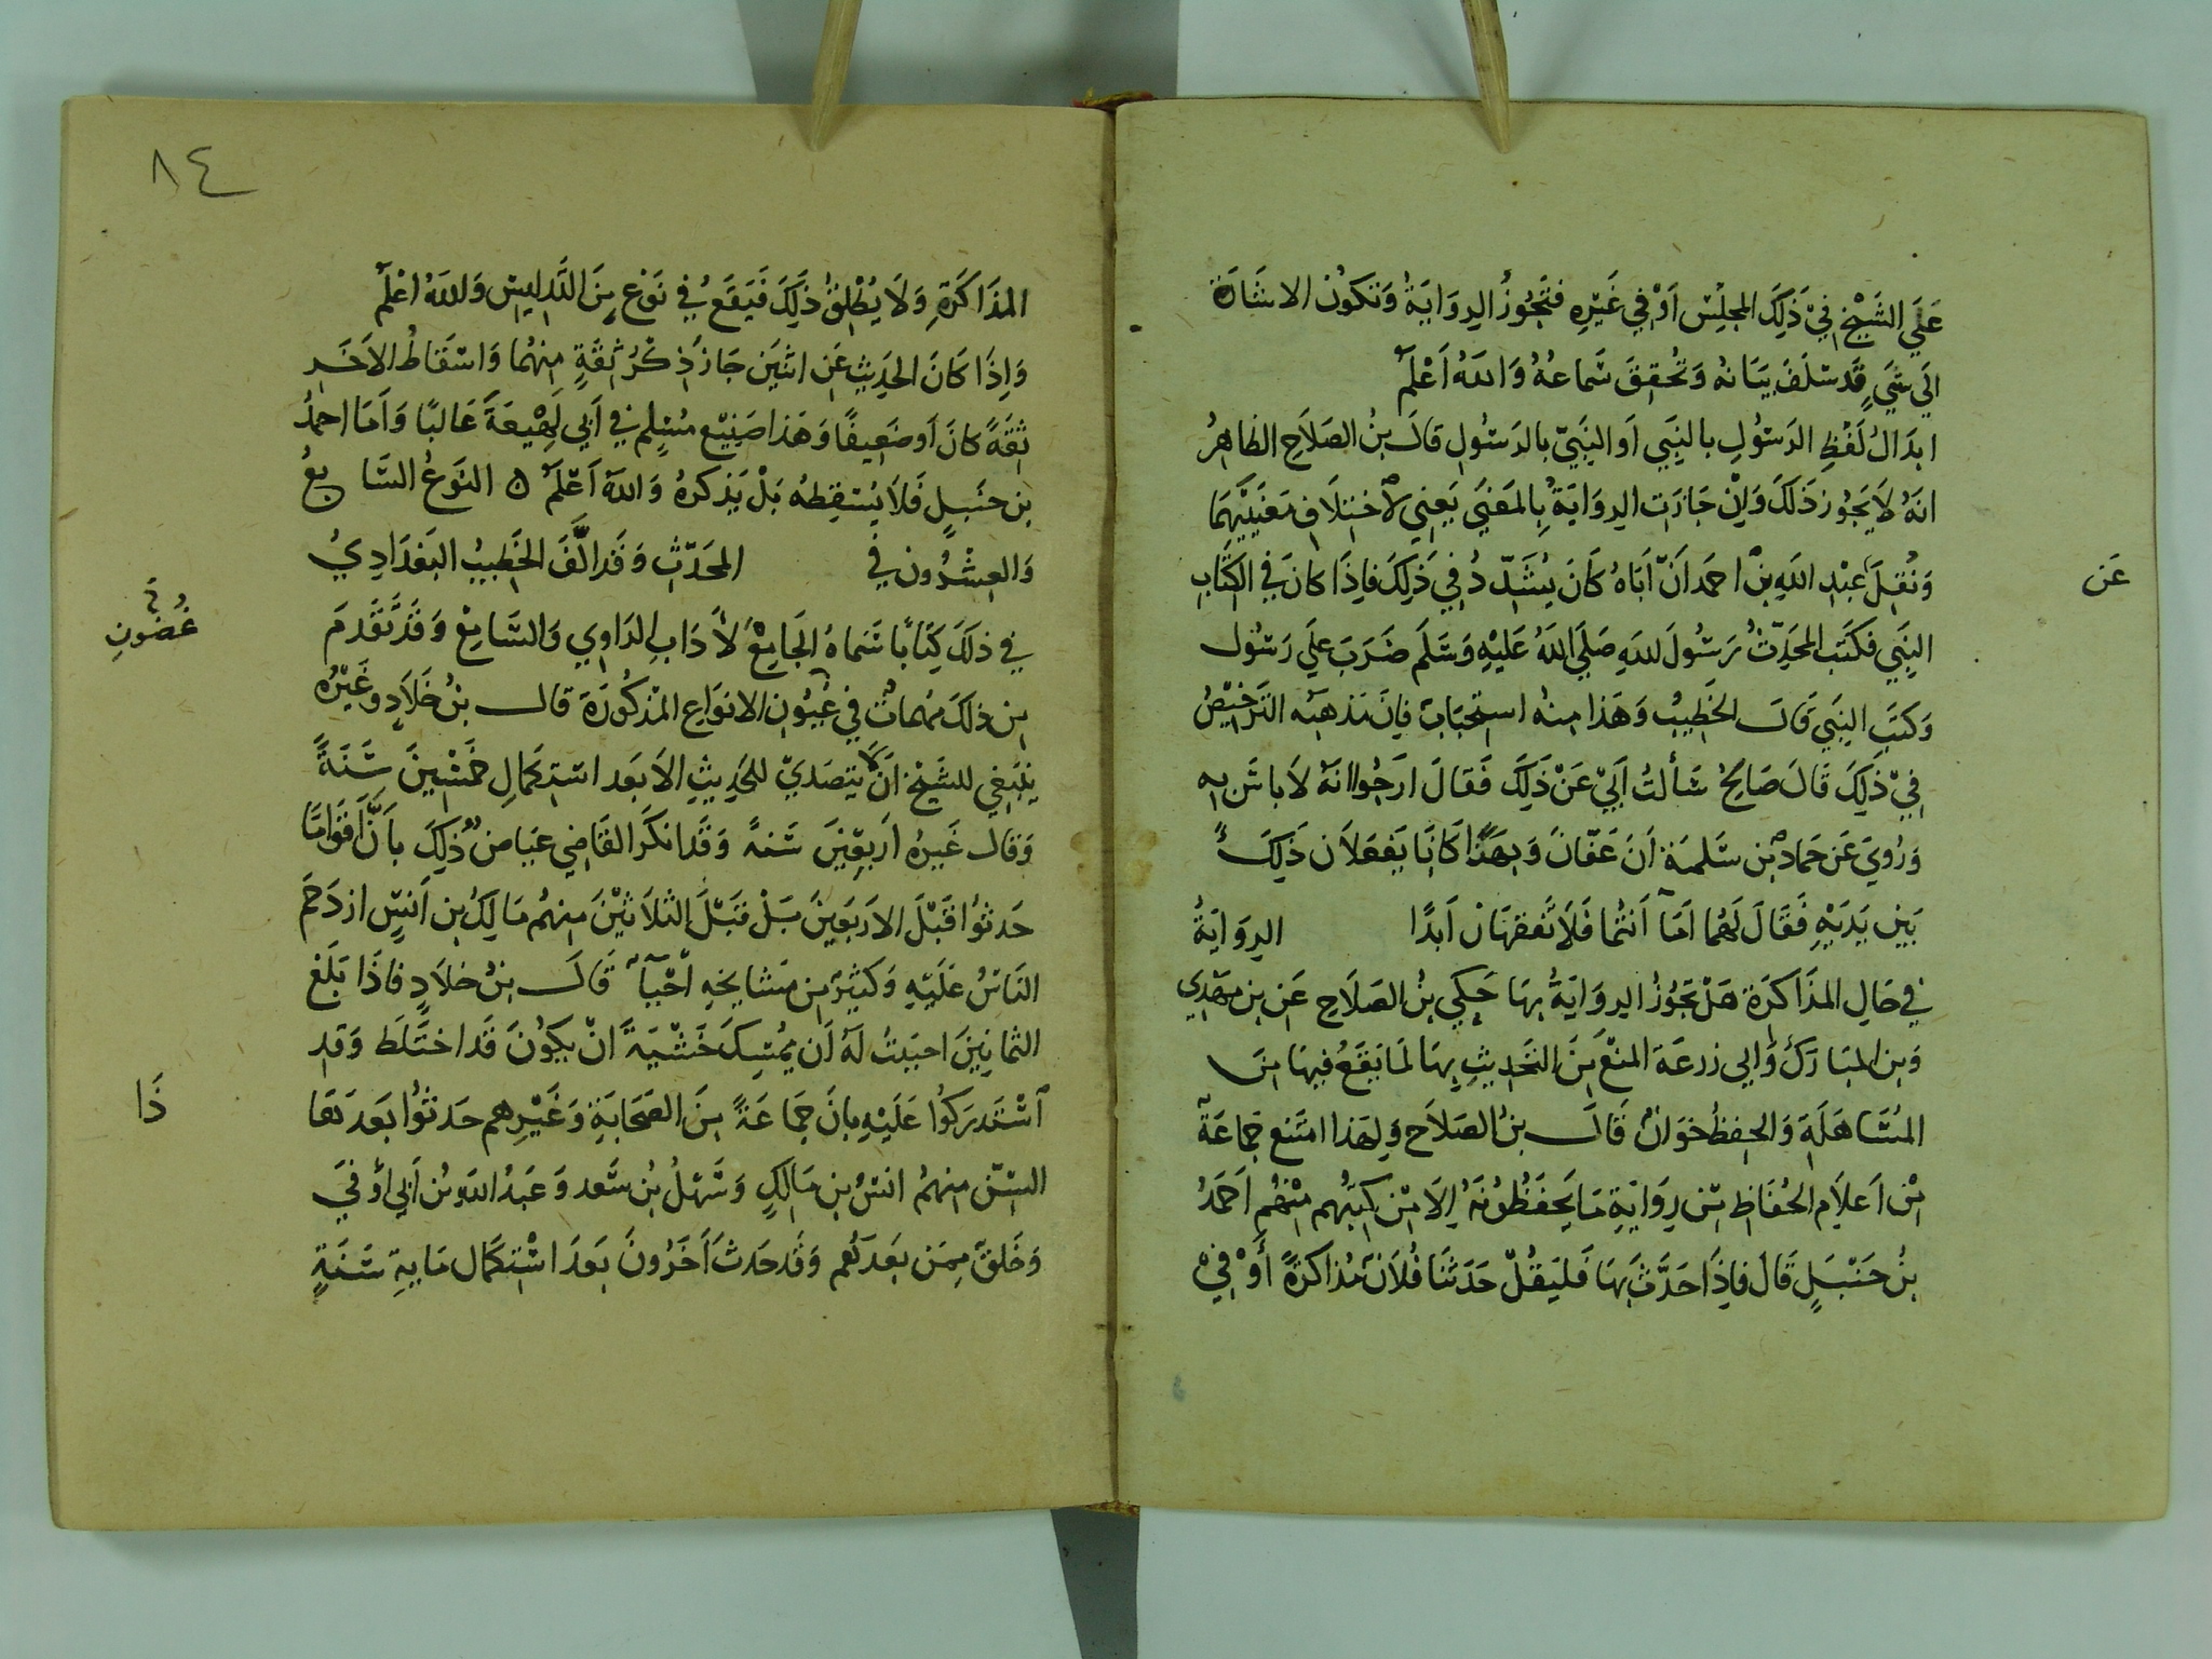 عَلَي الشَيْخ فِيْ ذَلِكَ المجلِسْ اَوْ فِي غَيرِه فتَجُوزُ الرِوَايَةُ وَتكونُ الاشَارَة
الَي شَيءٍ قَد سْلَفَ بيَانه وَتحُققَ سَماعُهُ وَاللهُ اَعْلَم
ابدَالُ لَفْظِ الرَسُولِ بالنَبَي اَو النَبَيّ بالرَسْولِ قالَ بنُ الصَلَاحِ الظاهِرُ
انهُ لَا يَجُوز ذَلكَ وَاِنْ جَازَت الرِوَايَةُ بِالمَعْنَي يَعني لاخْتلَافِ مَعْنَيَيْهمَا
وَنُقِلَ عبْدِ اللهِ بنْ احمَد اَنّ اَبَاهُ كَانَ يُشَدّدُ فِي ذَلِكَ فاِذَا كانَ فِي الكتَابِ
عَن
النَبَي فكتَب المحَدِّثُ رَسُولَ اللهِ صَلَي اللهُ عَليْهِ وَسَلَم ضَرَبَ علَي رَسُول
وَكتَبَ النبَي قَالَ الخَطِيبُ وَهَذا منهُ استحبَابٌ فاِنَ مَذهبَه الترَخيْصُ
فِيْ ذَلِكَ قَالَ صَالِحُ سَألتُ اَبيْ عَنْ ذَلِكَ فَقالَ ارجُوا انهَ لَا باسَ به
وَرُويَ عَن حَماد بْن سَلمَة اَنَ عَفّانَ وَبهَذًا كَانَا يَفعَلَان ذَلِكَ
بَين يَدَيْهِ فَقَالَ لَهُما اَمَا اَنتُما فَلَا تفقهَان اَبدًا الرِوَايَةُ
في حَالِ المذَاكرَة هَلْ تجَوزُ الرِوَايَةُ بهَا حَكِي بنُ الصَلَاحِ عَن بن مهَدِي
وَبن المبَارَكْ وَابي زرعَة المنعَ مِنَ التَحْدِيثِ بِهَا لمَا يَقعُ فيهَا مَنَ
المُسَاهَلَةِ وَالحِفظُ خوَانٌ قَالَ بنُ الصَلَاح وَلِهَذا امتَنع جَماعَة
مْن اَعلَامِ الحُفَاظِ مِن رِوَايَةِ مَا يَحفَظُونهُ اِلَا مْن كتبهِم مِنْهُم اَحمَدُ
بنُ حَنْبَلٍ قَالَ فاِذَا حَدَّثَ بهَا فَليَقُلْ حَدَثنَا فُلَانٌ مُذاكرَةً أَوْ فِيْ
٨٤
المذَاكَرَةِ وَلَا يُطْلِقُ ذَلِكَ فَيَقَعُ فِي نَوْعٍ مِنَ التَدلِيسِ وَاللهُ اعْلَم
وَاِذَا كَانَ الحَدِيثِ عَن اثنَين جَازَ ذِكْرُ ثقَةٍ منهُما وَاسْقاطُ الاَخَرِ
ثقةً كانَ اَو ضَعِيفًا وَهَذا صَنِيْع مُسْلِم في اَبي لَهِيعَةَ غَالبًا وَاَمَا احمدُ
بن حنبَلٍ فَلَا يُسْقِطه بَلْ يَذكرهُ وَاللهُ اَعْلَم ٥ النَوعُ السَابعُ
وَالعِشْرُون في المحَدّثِ وَقَد الَّفَ الخَطِيبُ البَغدَادِيُ
في ذلَكَ كِتابًا سَماهُ الجَامِعْ لاَدَابِ الرَاوِي وَالسَامِعْ وَقَدْ تَقَدمَ
من ذلَكَ مُهماتٌ في عُيُونِ الانوَاعِ المذكُورَة قالَ بنُ خَلَادٍ وغَيْرُه
غُضُونِ
ينبَغي للشَيْخ اَن لا يتصَديّ للحَدِيثِ الاَ بَعد اسْتِكمَالِ خمْسِينَ سَنَةً
وَقالَ غَيرُه اَربعِينَ سَنةً وَقَد انكَر القَاضِي عيَاض ذَلِكَ بأَنَّ اَقوَامًا
حَدثوُا قَبْلَ الاَربَعينَ بَلْ قبَلَ الثلَاثيْنَ منهُم مَالِكُ بِن اَنسٍ ازدَحَم
النَاسُ عَلَيْهِ وَكثيرٌ مِن مَشايخِهِ اَحْيَآءٌ قَالَ بنُ خلادٍ فاذَا بَلَغَ
الثمانِينَ احبَبتُ لَهُ اَن يمُسِكَ خَشْيَةَ انْ يَكُونَ قَد اختَلَط وَقدِ
اسْتَدرَكُوا عَلَيْهِ بانَ جَماعَةً مِنَ الصَحَابَةِ وَغَيْرِهِم حَدثوُا بَعدَ هَا
ذَا
السِنّ منهمُ انسُ بِن مَالِكٍ وَسَهْلُ بْن سَعد وَعَبدُ اللهِ بْن اَبي اَوْفيَ
وَخَلقٌ مِمَن بَعدَهُم وَقَد حَدثَ اَخَرُونَ بَعدَ اسْتِكمَال مَايةِ سَنَةٍ